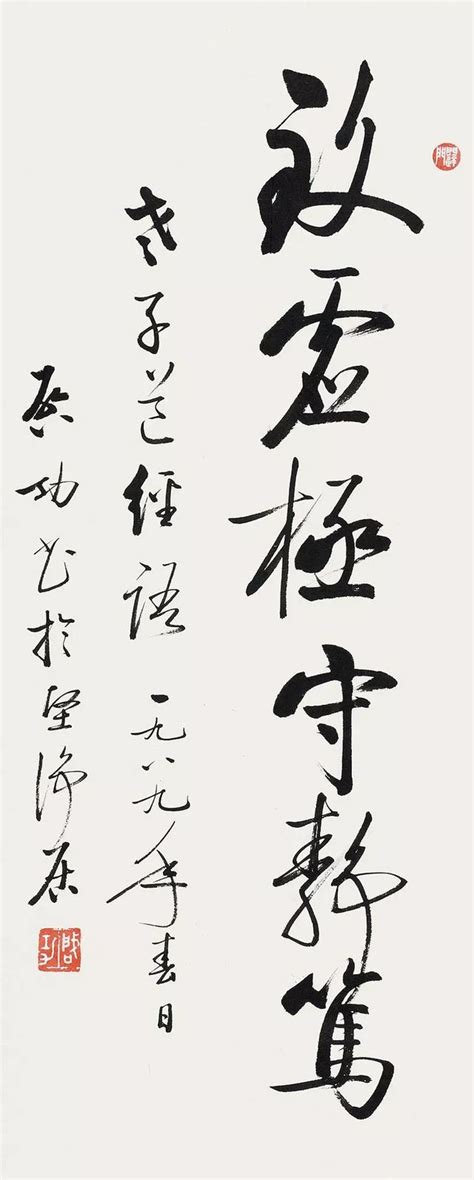 致虚極守靜篤
老子道經語 一九八九年春日
啓功書於堅淨居
啟功